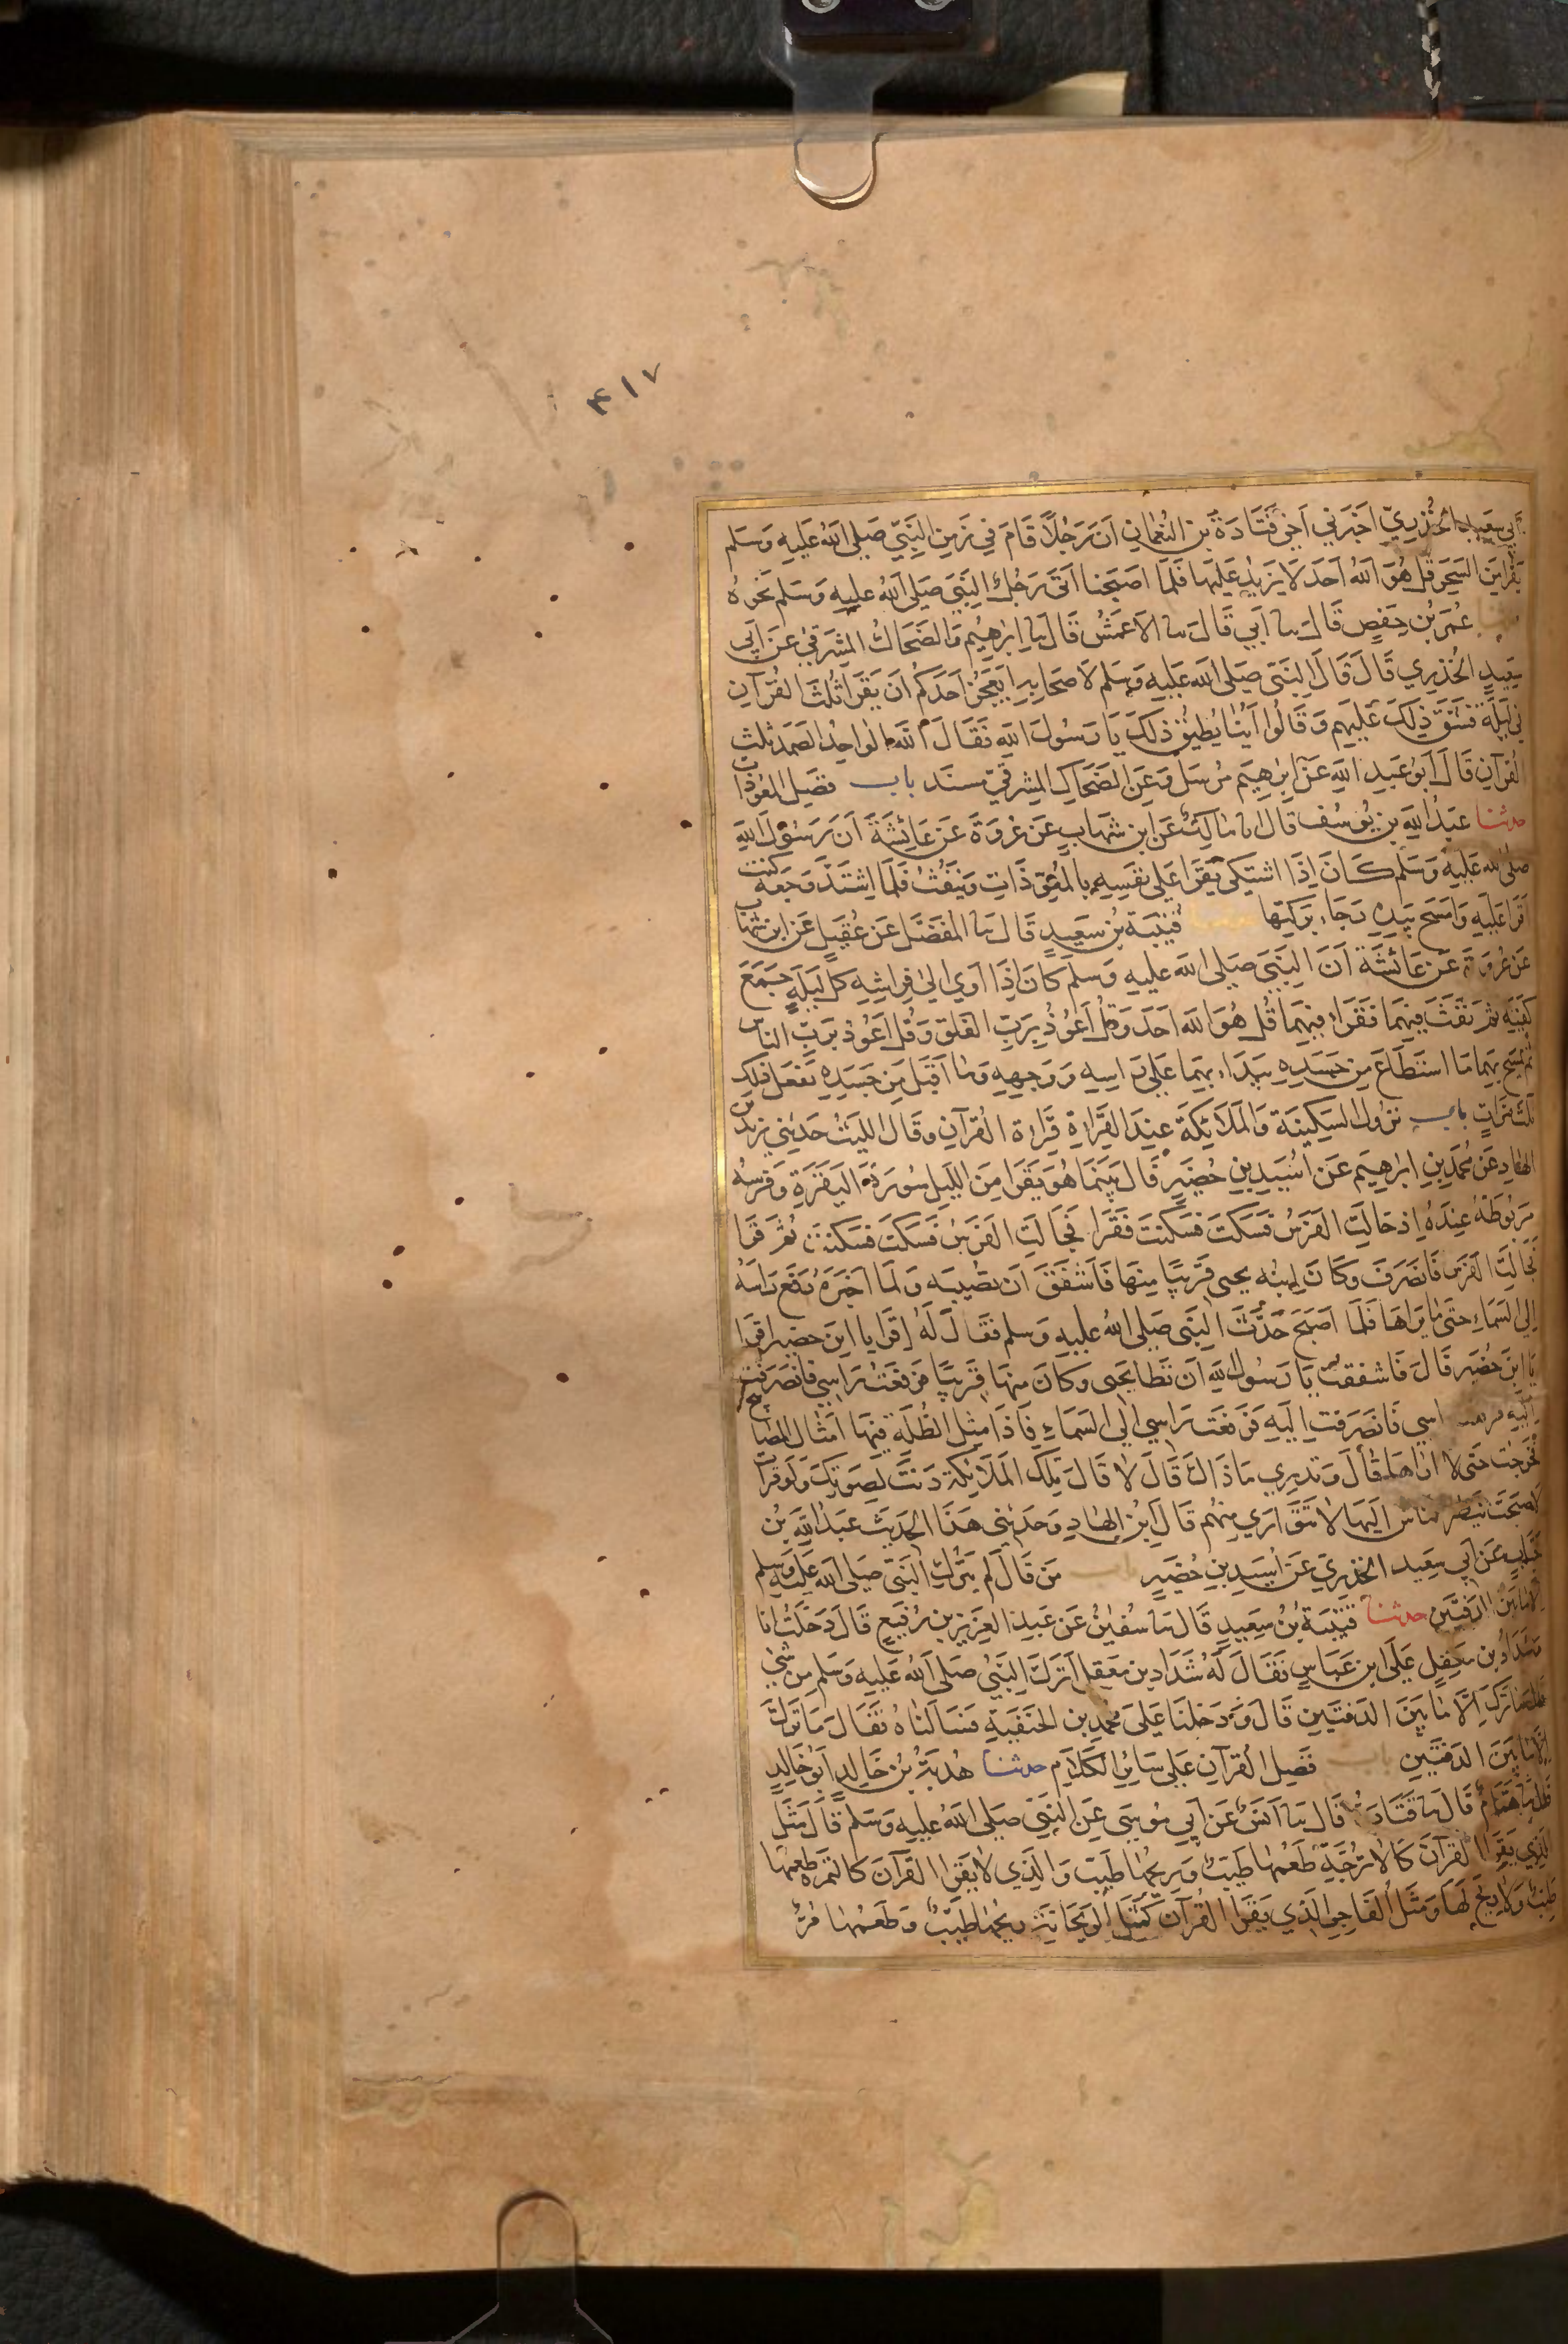 ۴۱۷
أبي سعيد الخُدْرِيّ اَخْبَرَنِي اَخِي قَتَادَةُ بن النُعمانِ اَنَ رَجُلًا قَامَ فِي زَمَنِ النَبِيّ صَلى اللهُ عَلَيهِ وَسَلم
يَقْرا مِنَ السَحَرِ قُل هُوَ اللهُ اَحَد لَا يَزيدُ عَلَيهَا فَلَمَّا اصبَحنا اَتَى رَجُلٌ النَبِيَ صَلى اللهُ عليهِ وَسَلم نَحْوَهُ
عُمَرُ بْن حَفصٍ قَالَ ثنا اَبي قَالَ ثنا الاَعمَشُ قَالَ ثنا اِبرٰهِيمُ وَالضَحَاكُ المِشرَقيُ عَنَ اَبي
سَعِيدٍ الخُدْرِي قَالَ قَالَ النَبَيّ صَلى الله عَليهِ وَسَلم لاَصحَابِهِ اَيَعجَزُ اَحَدُكُم اَن يَقرَا ثُلثَ القُرآنِ
في لَيلَةٍ فَشَقَّ ذٰلِكَ عَلَيهِم وَقَالُوا اَيُّنا يُطيقُ ذٰلِكَ يَا رَسُولَ اللهِ فَقَالَ اللهُ الوَاحِدُ الصَمَد ثلث
القُرآنِ قَالَ اَبوُ عَبدِ اللهِ عَنْ اِبرٰهِيم مُرسَلٌ وَعَن الضَحَّاكِ المِشرَقيّ مسنَد باب فضَل المعَوّذات
حدثنا عَبدُ اللهِ بن يُوسُف قَالَ انا مٰالِكٌ عَن ابن شهَابٍ عَن عُروَةَ عَن عَائِشَةَ اَنَّ رَسُولَ اللهِ
صلى الله عَليهِ وَسَلم كَانَ اِذَا اشتَكى يَقرَا عَلى نَفسِهِ بالمُعَوّذَاتِ وَيَنفُثُ فَلَمَّا اشتَدَّ وَجَعهُ كنت
اَقرَا عَلَيهِ وَامسَح بِيَدِهِ رَجَاءَ بَرَكتِهَا قُتَيبَة بُن سَعِيدٍ قَالَ ثنا المفَضَّل عَن عُقَيلٍ عَن ابن شهَاب
عَن عُروَةَ عَن عَائشَةَ اَنَّ النَبيَ صَلى اللهُ عليهِ وَسَلَم كَانَ اِذَا اَوٰى اِلىٰ فِراشِهِ كلَّ لَيلَةٍ جَمَعَ
كفَّيهِ ثمَّ نَفَثَ فِيهِمَا فَقَرَا فِيهِمَا قُل هُوَ اللهُ اَحَد وَقُل اَعُوُذُ بِرَبِّ الفَلَق وَقُل اَعُوُذُ بِرَبِّ الناسِ
ثم يمسَح بِهِمَا مَا استَطَاعَ مِن جَسَدِهِ يَبدَاءُ بِهِمَا عَلى رَاسِهِ وَوَجهِهِ وَمٰا اَقبَلَ مِن جَسَدِهِ يَفعَل ذلك
ثَلث مَرّاتٍ باب نزُول السَكِينَةِ وَالمَلَائِكَة عِندَ القِرَاءةِ قَرَاءة القُرآنِ وقَالَ اللَيثُ حَدَثِني يزيدُ بن
الهَادِ عَن مُحَمَدِ بنِ اِبرَاهِيم عَن اُسَيدِ بن حُضَيرٍ قَالَ بَينَمَا هُوَ يَقرَا مِنَ اللَيلِ سُورَةَ البَقرَةِ وَفرسُه
مَربوطَةٌ عِندَهُ اِذ جَالَتِ الفَرَسُ فَسَكتَ فسَكنت فَقَرَا فَجَالَتِ الفَرَسُ فَسَكتَ فسَكنَت ثُمَّ قرا
فجَالتِ الفَرَس فَانصَرَفَ وَكَانَ اِبنُه يحيى قَريبًا مِنهَا فَاَشفَقَ اَن تصُيبَه وَلمَا اخبَرَهُ رَفَعَ رَاسَهُ
إلى السَمَاءِ حتىّ مٰا يَراهَا فَلمَّا اصبَحَ حَدَّثَ النَبَى صَلى اللهُ عليهِ وَسلم فقَالَ لَهُ اقرَا يا ابنَ حضير اقرَا
يَا ابنَ حُضَيرٍ قَالَ فَاشفَقتُ يَا رَسُولَ اللهِ اَن تَطا يَحيَى وكَانَ مِنهَا قَرِيبًا فرَفعَتُ رَاسي فَانصَرَفت
اسي فَانصَرَفت اِلَيهِ فَرَفَعت رَاسي اِلى السَمَاءِ فَاذَا مِثل الظُلةِ فِيهَا اَمثَال المصَابيح
فخَرجَت حَتى لا ارٰاهَا قالَ وَتَدرِي مَا ذَاكَ قَالَ لَا قَالَ تِلكَ المَلَائِكَة دَنَتْ لِصَوتكَ وَلَو قرات
لاصبَحَت ينظر الناس اليهَا لا تتَوَارَى مِنهُم قَالَ ابن الهَادِ وَحَدثِني هَذَا الحَدِيث عَبدُ اللهِ بن
خَبّابٍ عَن اَبي سَعِيد الخُدرِي عَن اُسَيدِ بن حُضَيرٍ باب مَن قَالَ لَم يَتركِ النَبيّ صَلى الله عليه وَسَلم
الا مَا بَينَ الدفتَينِ حدثنا قتَيبَةُ بُن سَعِيدٍ قَالَ ثنا سُفيٰنُ عَن عَبدِ العَزيزِ بن رُفيَع قَالَ دَخَلتُ انا
وَشَدّادُ بن مَعقِلٍ عَلى ابن عَبّاسٍ فَقَالَ لَهُ شَدّاد بن مَعقِلٍ اَتَرَكَ النَبيُّ صَلى اللهُ عليهِ وَسَلم مِن شَي
قالَ مَا تَرَكَ اِلّا مَا بَينَ الدَفتَينِ قَالَ وَدَخَلنَا عَلى مُحَمدِ بن الحَنَفيَةِ فسَالنَاهُ فقَالَ مَا تَركَ
الّا مَا بَينَ الدَفتَينِ باب فَضلِ القُرآنِ عَلى سَائِرِ الكَلَامِ حدثنا هُدبَةُ بن خَالدٍ اَبو خَالِدٍ
قالَ ثنا همامٌ قَالَ ثنا قَتَادَةُ قَالَ ثنا اَنسٌ عَن اَبي مُوسٰى عَنِ النَبيّ صَلى اللهُ عليهِ وَسَلم قَالَ مَثَلُ
الذِي يَقرَا القرآنَ كَالاترُجّةِ طَعمُهٰا طَيّبٌ وَرِيحُهَا طَيّب وَالذِي لا يَقرا القرآنَ كَالتَمرَة طَعمُهَا
طيّبٌ وَلا رِيحَ لهَا وَمَثَل الفَاجِر الذِي يَقرَا القُرآنَ كَمَثَلِ الرَيحَانَةِ رِيحُهَا طَيّبٌ وَطَعمُهٰا مُرٌّ